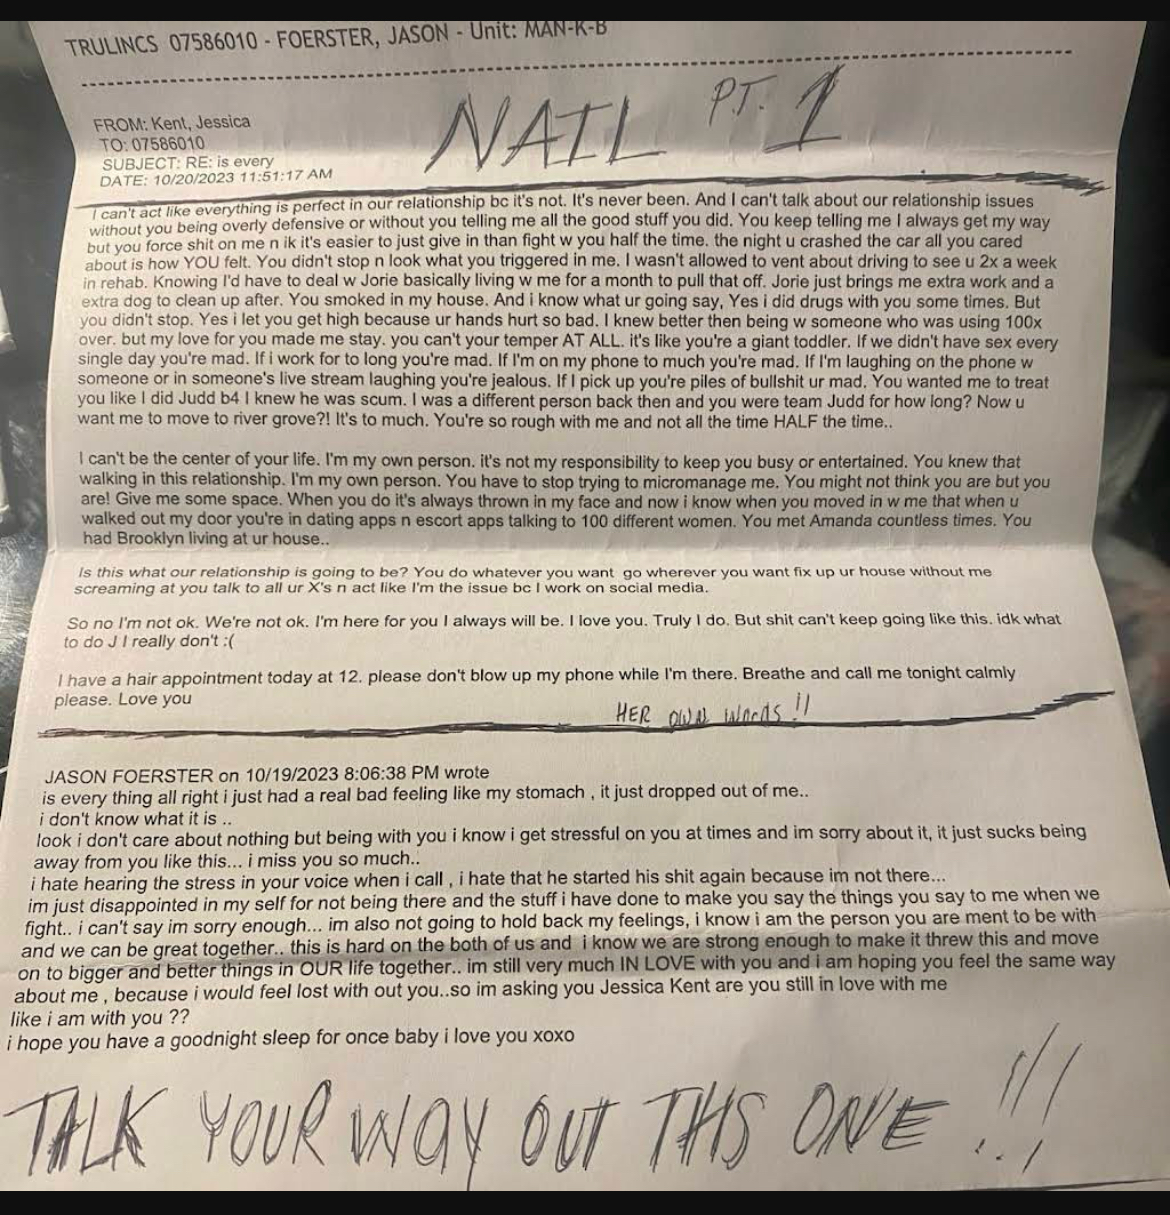 TRULINCS 07586010 - FOERSTER, JASON - Unit: MAN-K-B
NAIL PT. 1
FROM: Kent, Jessica
TO: 07586010
SUBJECT: RE: is every
DATE: 10/20/2023 11:51:17 AM
I can't act like everything is perfect in our relationship bc it's not. It's never been. And I can't talk about our relationship issues
without you being overly defensive or without you telling me all the good stuff you did. You keep telling me I always get my way
but you force shit on me n ik it's easier to just give in than fight w you half the time. the night u crashed the car all you cared
about is how YOU felt. You didn't stop n look what you triggered in me. I wasn't allowed to vent about driving to see u 2x a week
in rehab. Knowing I'd have to deal w Jorie basically living w me for a month to pull that off. Jorie just brings me extra work and a
extra dog to clean up after. You smoked in my house. And i know what ur going say, Yes i did drugs with you some times. But
you didn't stop. Yes i let you get high because ur hands hurt so bad. I knew better then being w someone who was using 100x
over. but my love for you made me stay. you can't your temper AT ALL. it's like you're a giant toddler. If we didn't have sex every
single day you're mad. If i work for to long you're mad. If I'm on my phone to much you're mad. If I'm laughing on the phone w
someone or in someone's live stream laughing you're jealous. If I pick up you're piles of bullshit ur mad. You wanted me to treat
you like I did Judd b4 I knew he was scum. I was a different person back then and you were team Judd for how long? Now u
want me to move to river grove?! It's to much. You're so rough with me and not all the time HALF the time..
I can't be the center of your life. I'm my own person. it's not my responsibility to keep you busy or entertained. You knew that
walking in this relationship. I'm my own person. You have to stop trying to micromanage me. You might not think you are but you
are! Give me some space. When you do it's always thrown in my face and now i know when you moved in w me that when u
walked out my door you're in dating apps n escort apps talking to 100 different women. You met Amanda countless times. You
had Brooklyn living at ur house..
Is this what our relationship is going to be? You do whatever you want go wherever you want fix up ur house without me
screaming at you talk to all ur X's n act like I'm the issue bc I work on social media.
So no I'm not ok. We're not ok. I'm here for you I always will be. I love you. Truly I do. But shit can't keep going like this. idk what
to do J I really don't :(
I have a hair appointment today at 12. please don't blow up my phone while I'm there. Breathe and call me tonight calmly
please. Love you
HER OWN WORDS !!
JASON FOERSTER on 10/19/2023 8:06:38 PM wrote
is every thing all right i just had a real bad feeling like my stomach , it just dropped out of me..
i don't know what it is ..
look i don't care about nothing but being with you i know i get stressful on you at times and im sorry about it, it just sucks being
away from you like this... i miss you so much..
i hate hearing the stress in your voice when i call , i hate that he started his shit again because im not there...
im just disappointed in my self for not being there and the stuff i have done to make you say the things you say to me when we
fight.. i can't say im sorry enough... im also not going to hold back my feelings, i know i am the person you are ment to be with
and we can be great together.. this is hard on the both of us and i know we are strong enough to make it threw this and move
on to bigger and better things in OUR life together.. im still very much IN LOVE with you and i am hoping you feel the same way
about me , because i would feel lost with out you..so im asking you Jessica Kent are you still in love with me
like i am with you ??
i hope you have a goodnight sleep for once baby i love you xoxo
TALK YOUR WAY OUT THS ONE !!!